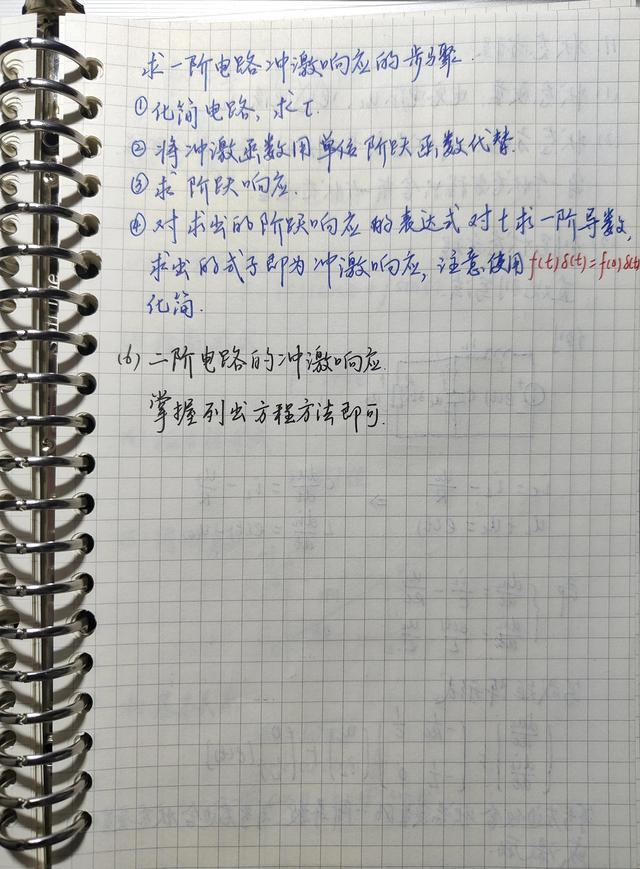 求一阶电路冲激响应的步骤.
①化简电路,求τ.
②将冲激函数用单位阶跃函数代替.
③求阶跃响应.
④对求出的阶跃响应的表达式对t求一阶导数,
求出的式子即为冲激响应,注意使用f(t)δ(t)=f(0)δ(t)
化简.
(6)二阶电路的冲激响应.
掌握列出方程方法即可.